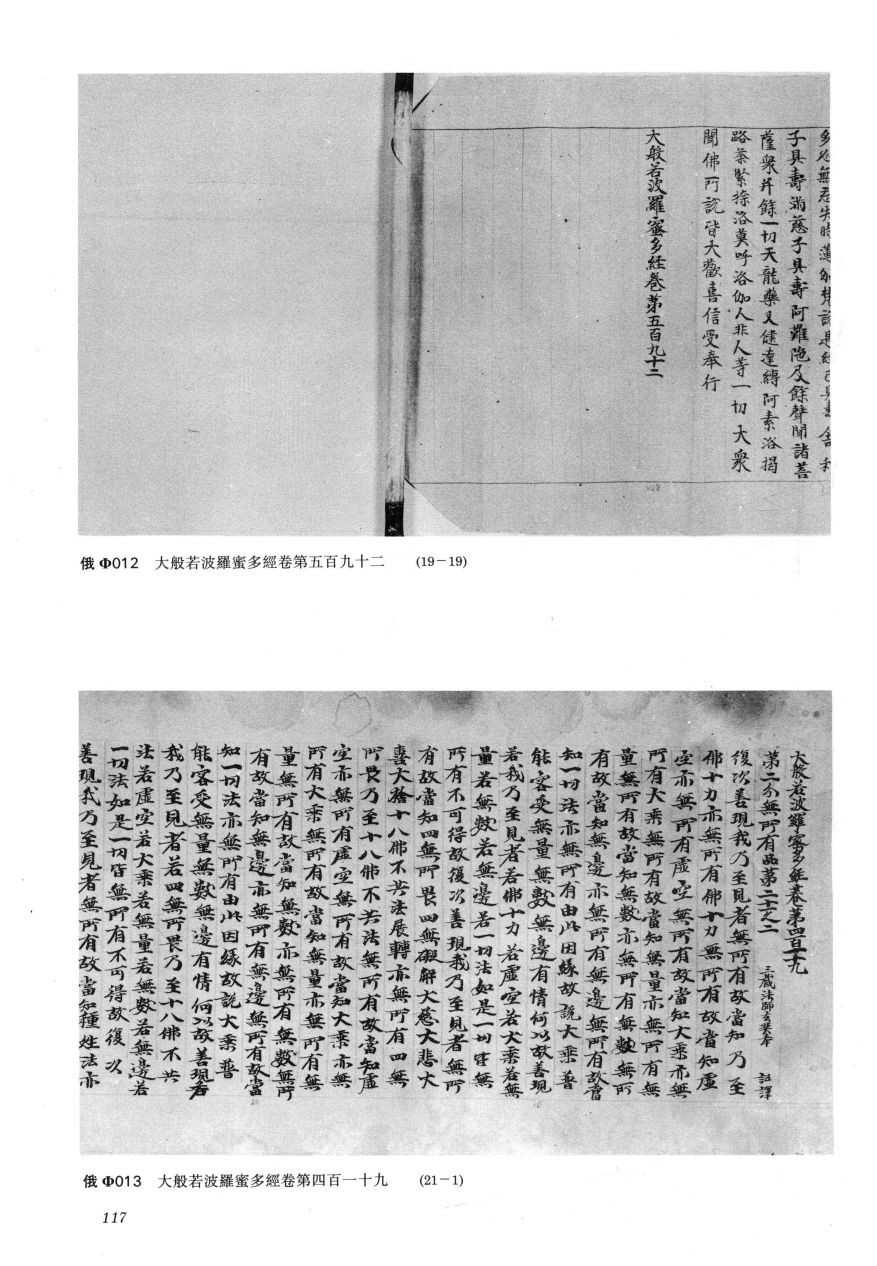 多心無忘失時薄伽梵說是經已具壽舍利
子具壽滿慈子具壽阿難陁及餘聲聞諸菩
薩衆并餘一切天龍藥叉健達縛阿素洛揭
路荼緊捺洛莫呼洛伽人非人等一切大衆
聞佛所說皆大歡喜信受奉行
大般若波羅蜜多經卷第五百九十二
俄Φ012 大般若波羅蜜多經卷第五百九十二 (19-19)
大般若波羅蜜多經卷第四百一十九
第二分無所有品第二十一之二 三藏法師玄奘奉 詔譯
復次善現我乃至見者無所有故當知乃至
佛十力亦無所有佛十力無所有故當知虛
空亦無所有虛空無所有故當知大乘亦無
所有大乘無所有故當知無量亦無所有無
量無所有故當知無數亦無所有無數無所
有故當知無邊亦無所有無邊無所有故當
知一切法亦無所有由此因緣故說大乘普
能容受無量無數無邊有情何以故善現
若我乃至見者若佛十力若虛空若大乘若無
量若無數若無邊若一切法如是一切皆無
所有不可得故復次善現我乃至見者無所
有故當知四無所畏四無礙解大慈大悲大
喜大捨十八佛不共法展轉亦無所有四無
所畏乃至十八佛不共法無所有故當知虛
空亦無所有虛空無所有故當知大乘亦無
所有大乘無所有故當知無量亦無所有無
量無所有故當知無數亦無所有無數無所
有故當知無邊亦無所有無邊無所有故當
知一切法亦無所有由此因緣故說大乘普
能容受無量無數無邊有情何以故善現若
我乃至見者若四無所畏乃至十八佛不共
法若虛空若大乘若無量若無數若無邊若
一切法如是一切皆無所有不可得故復次
善現我乃至見者無所有故當知種姓法亦
俄Φ013 大般若波羅蜜多經卷第四百一十九 (21-1)
117